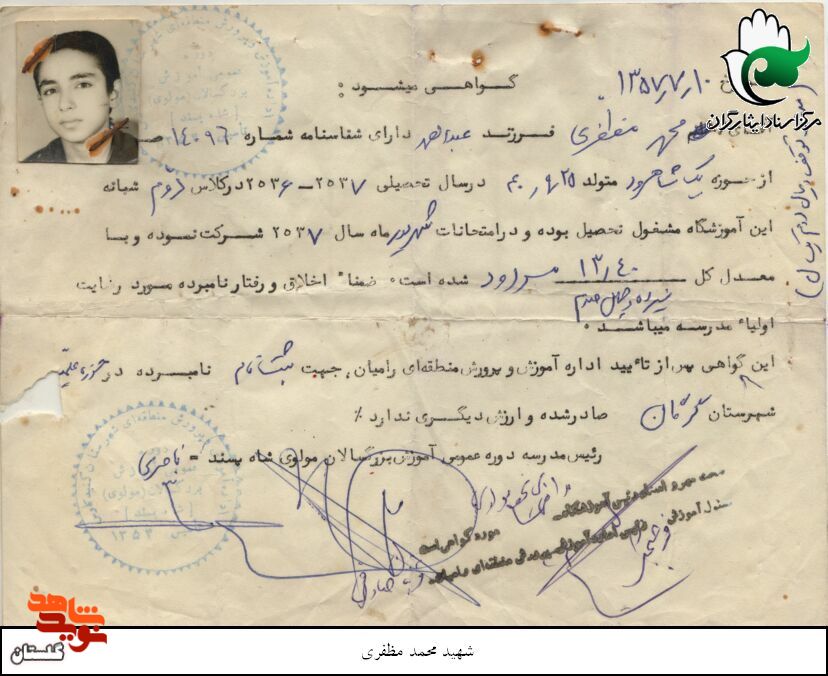 مرکز اسناد ایثارگران
۱۳۵۷٫۷٫۱۰
گواهی میشود :
محمد مظفری فرزند عبداله دارای شناسنامه شماره ۱۴۰۹۶ ص
از حوزه یک شاهرود متولد در سال تحصیلی ۲۵۳۷ – ۲۵۳۶ در کلاس دوم شبانه
این آموزشگاه مشغول تحصیل بوده و در امتحانات شهریور ماه سال ۲۵۳۷ شرکت نموده و با
معدل کل ۱۳٫۴۰ مردود شده است ۰ ضمناً اخلاق و رفتار نامبرده مورد رضایت
سیزده و چهل صدم
اولیاء مدرسه میباشد ۰
این گواهی پس از تأیید اداره آموزش و پرورش منطقه‌ای رامیان، جهت ثبت نام نامبرده در حوزه علمیه
شهرستان گرگان صادر شده و ارزش دیگری ندارد ٪
رئیس مدرسه دوره عمومی آموزش بزرگسالان مولوی شاه پسند = ناصری
مورد گواهی است
شاهد
نوید
گلستان
شهید محمد مظفری